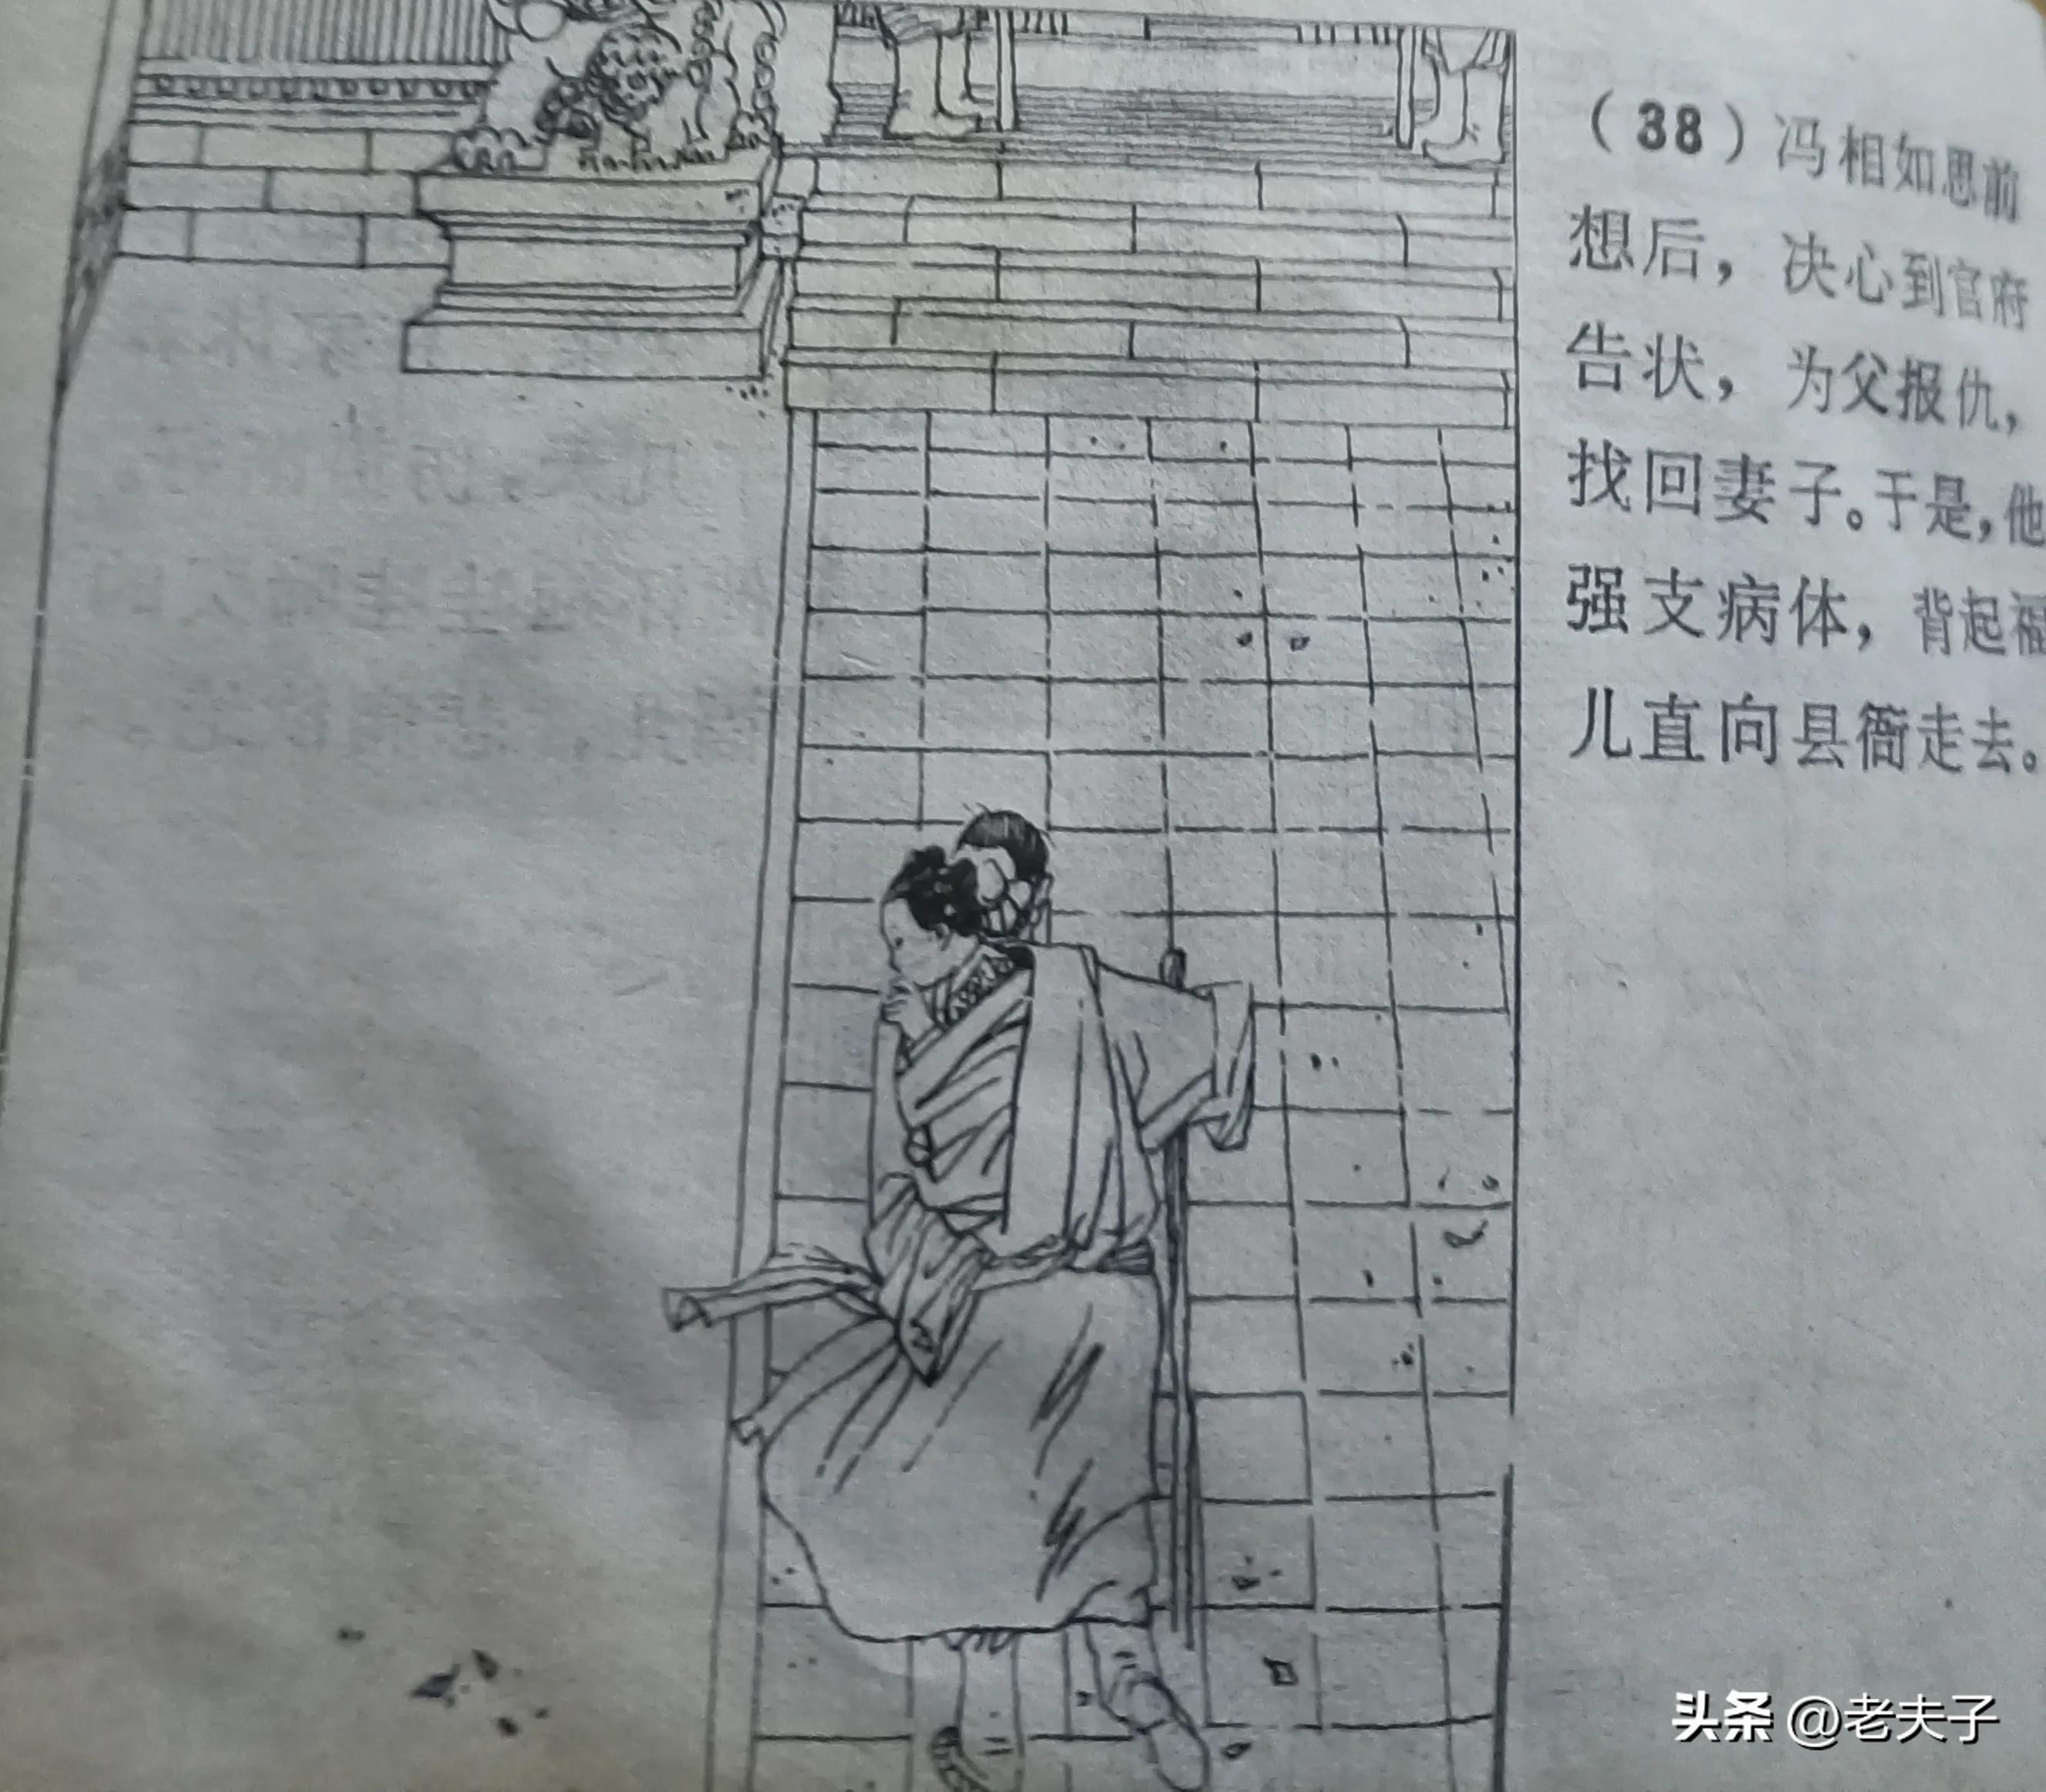 （38）冯相如思前
想后，决心到官府
告状，为父报仇，
找回妻子。于是，他
强支病体，背起福
儿直向县衙走去。
头条 @老夫子